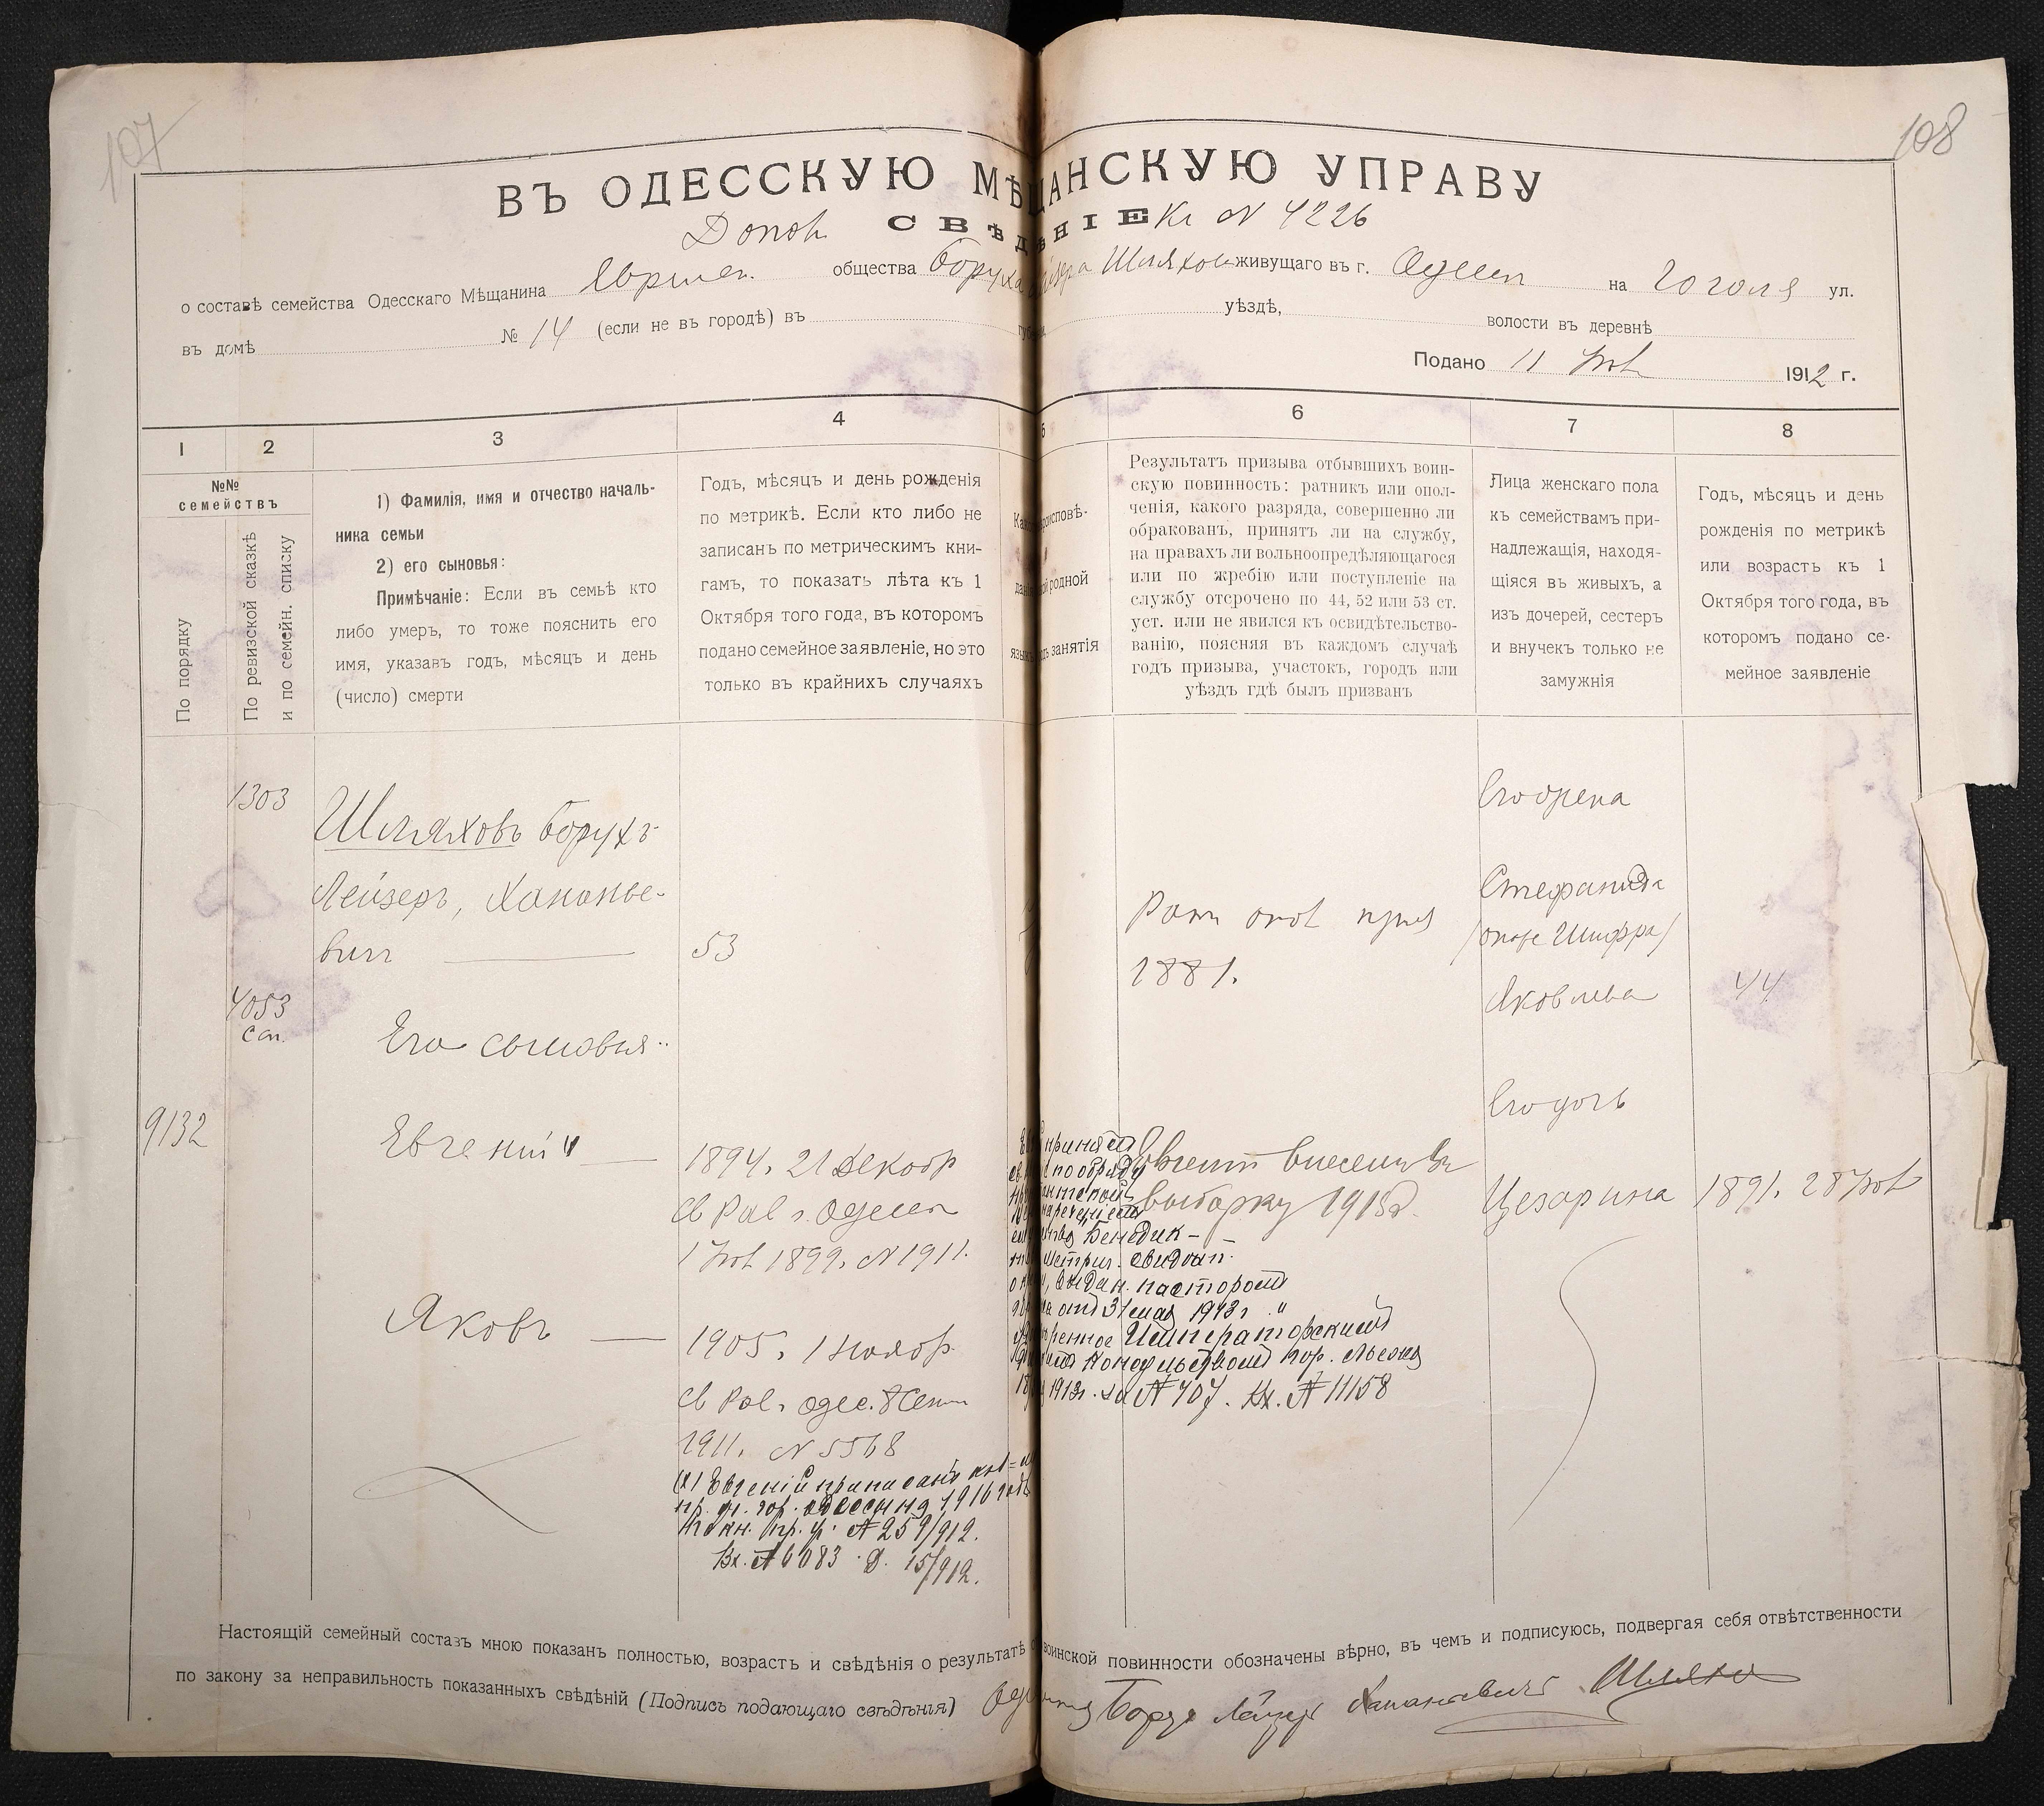 107
108
ВЪ ОДЕССКУЮ МѢЩАНСКУЮ УПРАВУ
СВѢДѢНІЕ
Допол. Къ № 4226
о составѣ семейства Одесскаго Мѣщанина Еврейск. общества Боруха Лейзера Шляхова живущаго въ г. Одессѣ на Гоголя ул.
въ домѣ № 14 (если не въ городѣ) въ губерніи уѣздѣ, волости въ деревнѣ
Подано 11 1912 г.
1
2
3
4
5
6
7
8
№№
семействъ
По порядку
По ревизской сказкѣ
и по семейн. списку
1) Фамилія, имя и отчество началь-
ника семьи
2) его сыновья:
Примѣчаніе: Если въ семьѣ кто
либо умеръ, то тоже пояснить его
имя, указавъ годъ, мѣсяцъ и день
(число) смерти
Годъ, мѣсяцъ и день рожденія
по метрикѣ. Если кто либо не
записанъ по метрическимъ кни-
гамъ, то показать лѣта къ 1
Октября того года, въ которомъ
подано семейное заявленіе, но это
только въ крайнихъ случаяхъ
родной
занятія
Результатъ призыва отбывшихъ воин-
скую повинность: ратникъ или опол-
ченія, какого разряда, совершенно ли
обракованъ, принятъ ли на службу,
на правахъ ли вольноопредѣляющагося
или по жребію или поступленіе на
службу отсрочено по 44, 52 или 53 ст.
уст. или не явился къ освидѣтельство-
ванію, поясняя въ каждомъ случаѣ
годъ призыва, участокъ, городъ или
уѣздъ гдѣ былъ призванъ
Лица женскаго пола
къ семействамъ при-
надлежащія, находя-
щіяся въ живыхъ, а
изъ дочерей, сестеръ
и внучекъ только не
замужнія
Годъ, мѣсяцъ и день
рожденія по метрикѣ
или возрастъ къ 1
Октября того года, въ
которомъ подано се-
мейное заявленіе
1303
Шляховъ Борухъ
Лейзеръ, Хананье-
вич 53
4053
Его сыновья:
9132
Евгеній
1894, 21 Декабр
г. Одессы
1899, № 1911.
Яковъ
1905, 1 Ноябр
1911, № 5568
Евгеній приписанъ
гор. Одессы на 1916
№ 259/912.
Вх. № 6083 Д. 15/912.
1881.
Внесенъ въ
выборку 1915
Бенедик-
пасторомъ
31 мая 1913 г.
Императорскимъ
1913 г. за № 707. Вх. № 11158
Стефанида
Шифра/
Яковлева 44
Его дочь
Цезарина 1891, 28
Настоящій семейный составъ мною показанъ полностью, возрастъ и свѣдѣнія о результатѣ воинской повинности обозначены вѣрно, въ чемъ и подписуюсь, подвергая себя отвѣтственности
по закону за неправильность показанныхъ свѣдѣній (Подпись подающаго свѣдѣнія) Борух Лейзер Хананьевичъ Шляхов